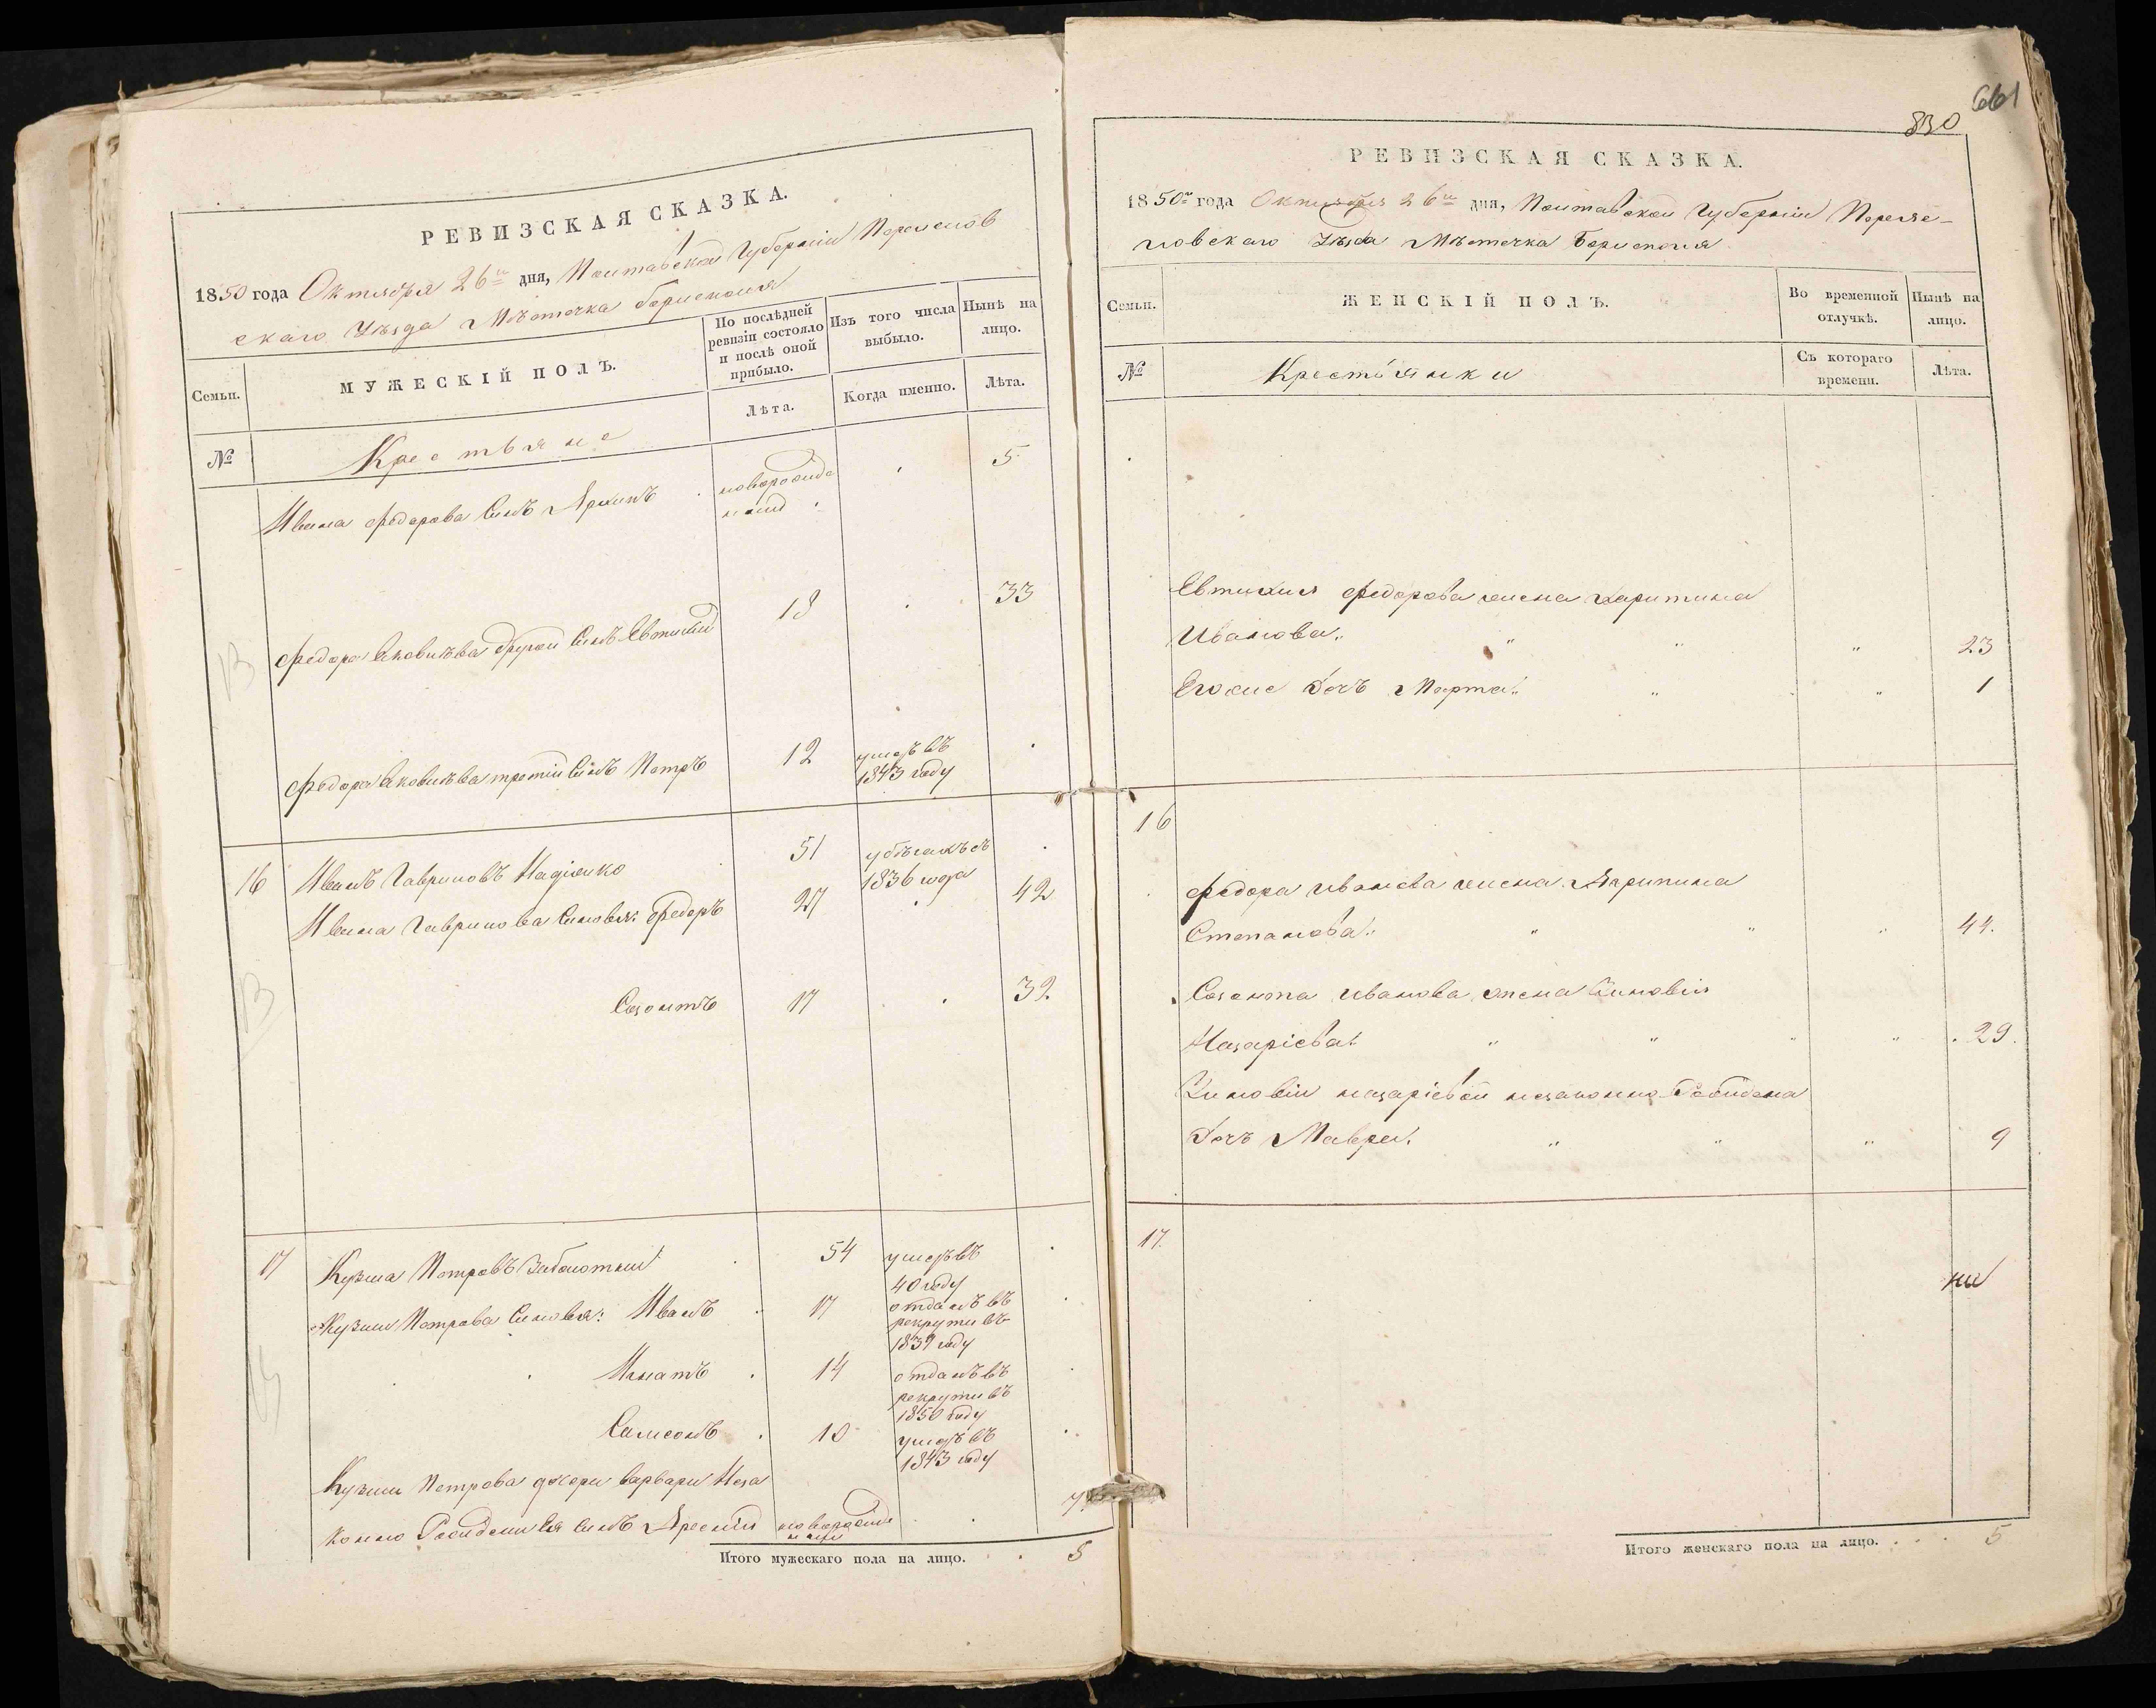 РЕВИЗСКАЯ СКАЗКА.
1850 года Октября 26го дня, Полтавской Губерніи Переяслов
скаго Уѣзда Мѣстечка Борисполя
Семьи.
МУЖЕСКІЙ ПОЛЪ.
По послѣдней ревизіи состояло и послѣ оной прибыло.
Изъ того числа выбыло.
Нынѣ на лицо.
Лѣта.
Когда именно.
Лѣта.
№
Крестьяне
Ивана Федорова Сынъ новорожде 5
нный
Федора Яковлева другой Сынъ Евтихій 18 33
Федора Яковлева третій Сынъ Петръ 12 умеръ въ
1843 году
16 Иванъ Гавриловъ 51
1836 года
Ивана Гаврилова Сыновья: Федоръ 27 42
Созонтъ 17 32
17 Кузьма Петровъ Заболотный 54 умеръ въ
40 году
Кузьмы Петрова Сыновья: Иванъ 17 отданъ въ
рекруты въ
1839 году
Игнатъ 14 отданъ въ
рекруты въ
1850 году
Самсонъ 10 умеръ въ
1843 году
Кузьмы Петрова дочери Варвары Неза
конно Рожденный Ея Сынъ Арсеній новорожде 7
нный
Итого мужескаго пола на лицо. 5
661
830
РЕВИЗСКАЯ СКАЗКА.
1850го года Октября 26го дня, Полтавской Губерніи Переяс-
ловскаго Уѣзда Мѣстечка Борисполя
Семьи.
ЖЕНСКІЙ ПОЛЪ.
Во временной отлучкѣ.
Нынѣ на лицо.
№
Крестьянки
Съ котораго времени.
Лѣта.
Евтихия Федорова жена Харитина
Иванова. " " " 23
Его же дочь Марта. " " 1
16
Федора Иванова жена Агрипина
Степанова. " " " 44.
Созонта Иванова жена Зиновія
Назаріева. " " " " 29.
Зиновіи Назаріевой незаконно Рожденна
дочь Мавра. " " " 9
17.
Итого женскаго пола на лицо. 5